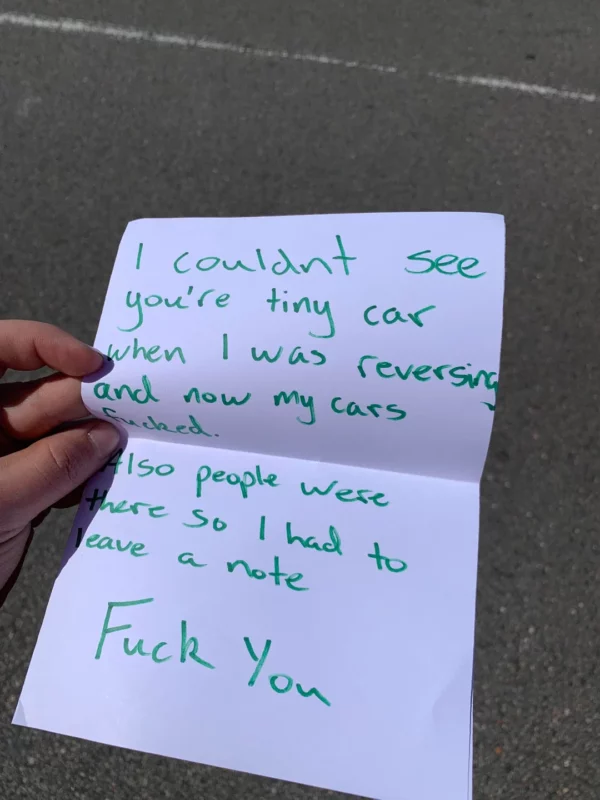 I couldnt see
you're tiny car
when I was reversing
and now my cars
fucked.
Also people were
there so I had to
leave a note
Fuck You